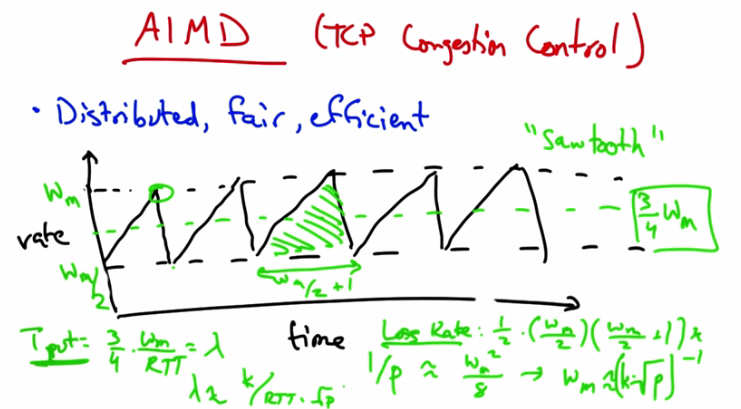 AIMD (TCP Congestion Control)
• Distributed, fair, efficient
"Sawtooth"
Wm
3/4 Wm
rate
Wm/2
Wm/2 + 1
time
Tput = 3/4 · Wm/RTT = λ
λ ≈ k/RTT·√p
Loss Rate: 1/2 · (Wm/2)(Wm/2 + 1)
1/p ≈ Wm²/8 → Wm ≈ (k·√p)⁻¹